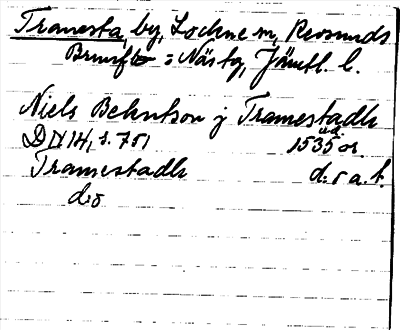 Tramesta, by, Lockne sn, Revsunds
Brunflo = Näs tg, Jämtl. l.
Niels Behntson j Tramestadh
DN 14, s. 751 1535 or. u.d.
Tramestadh d. o a. t.
d:o